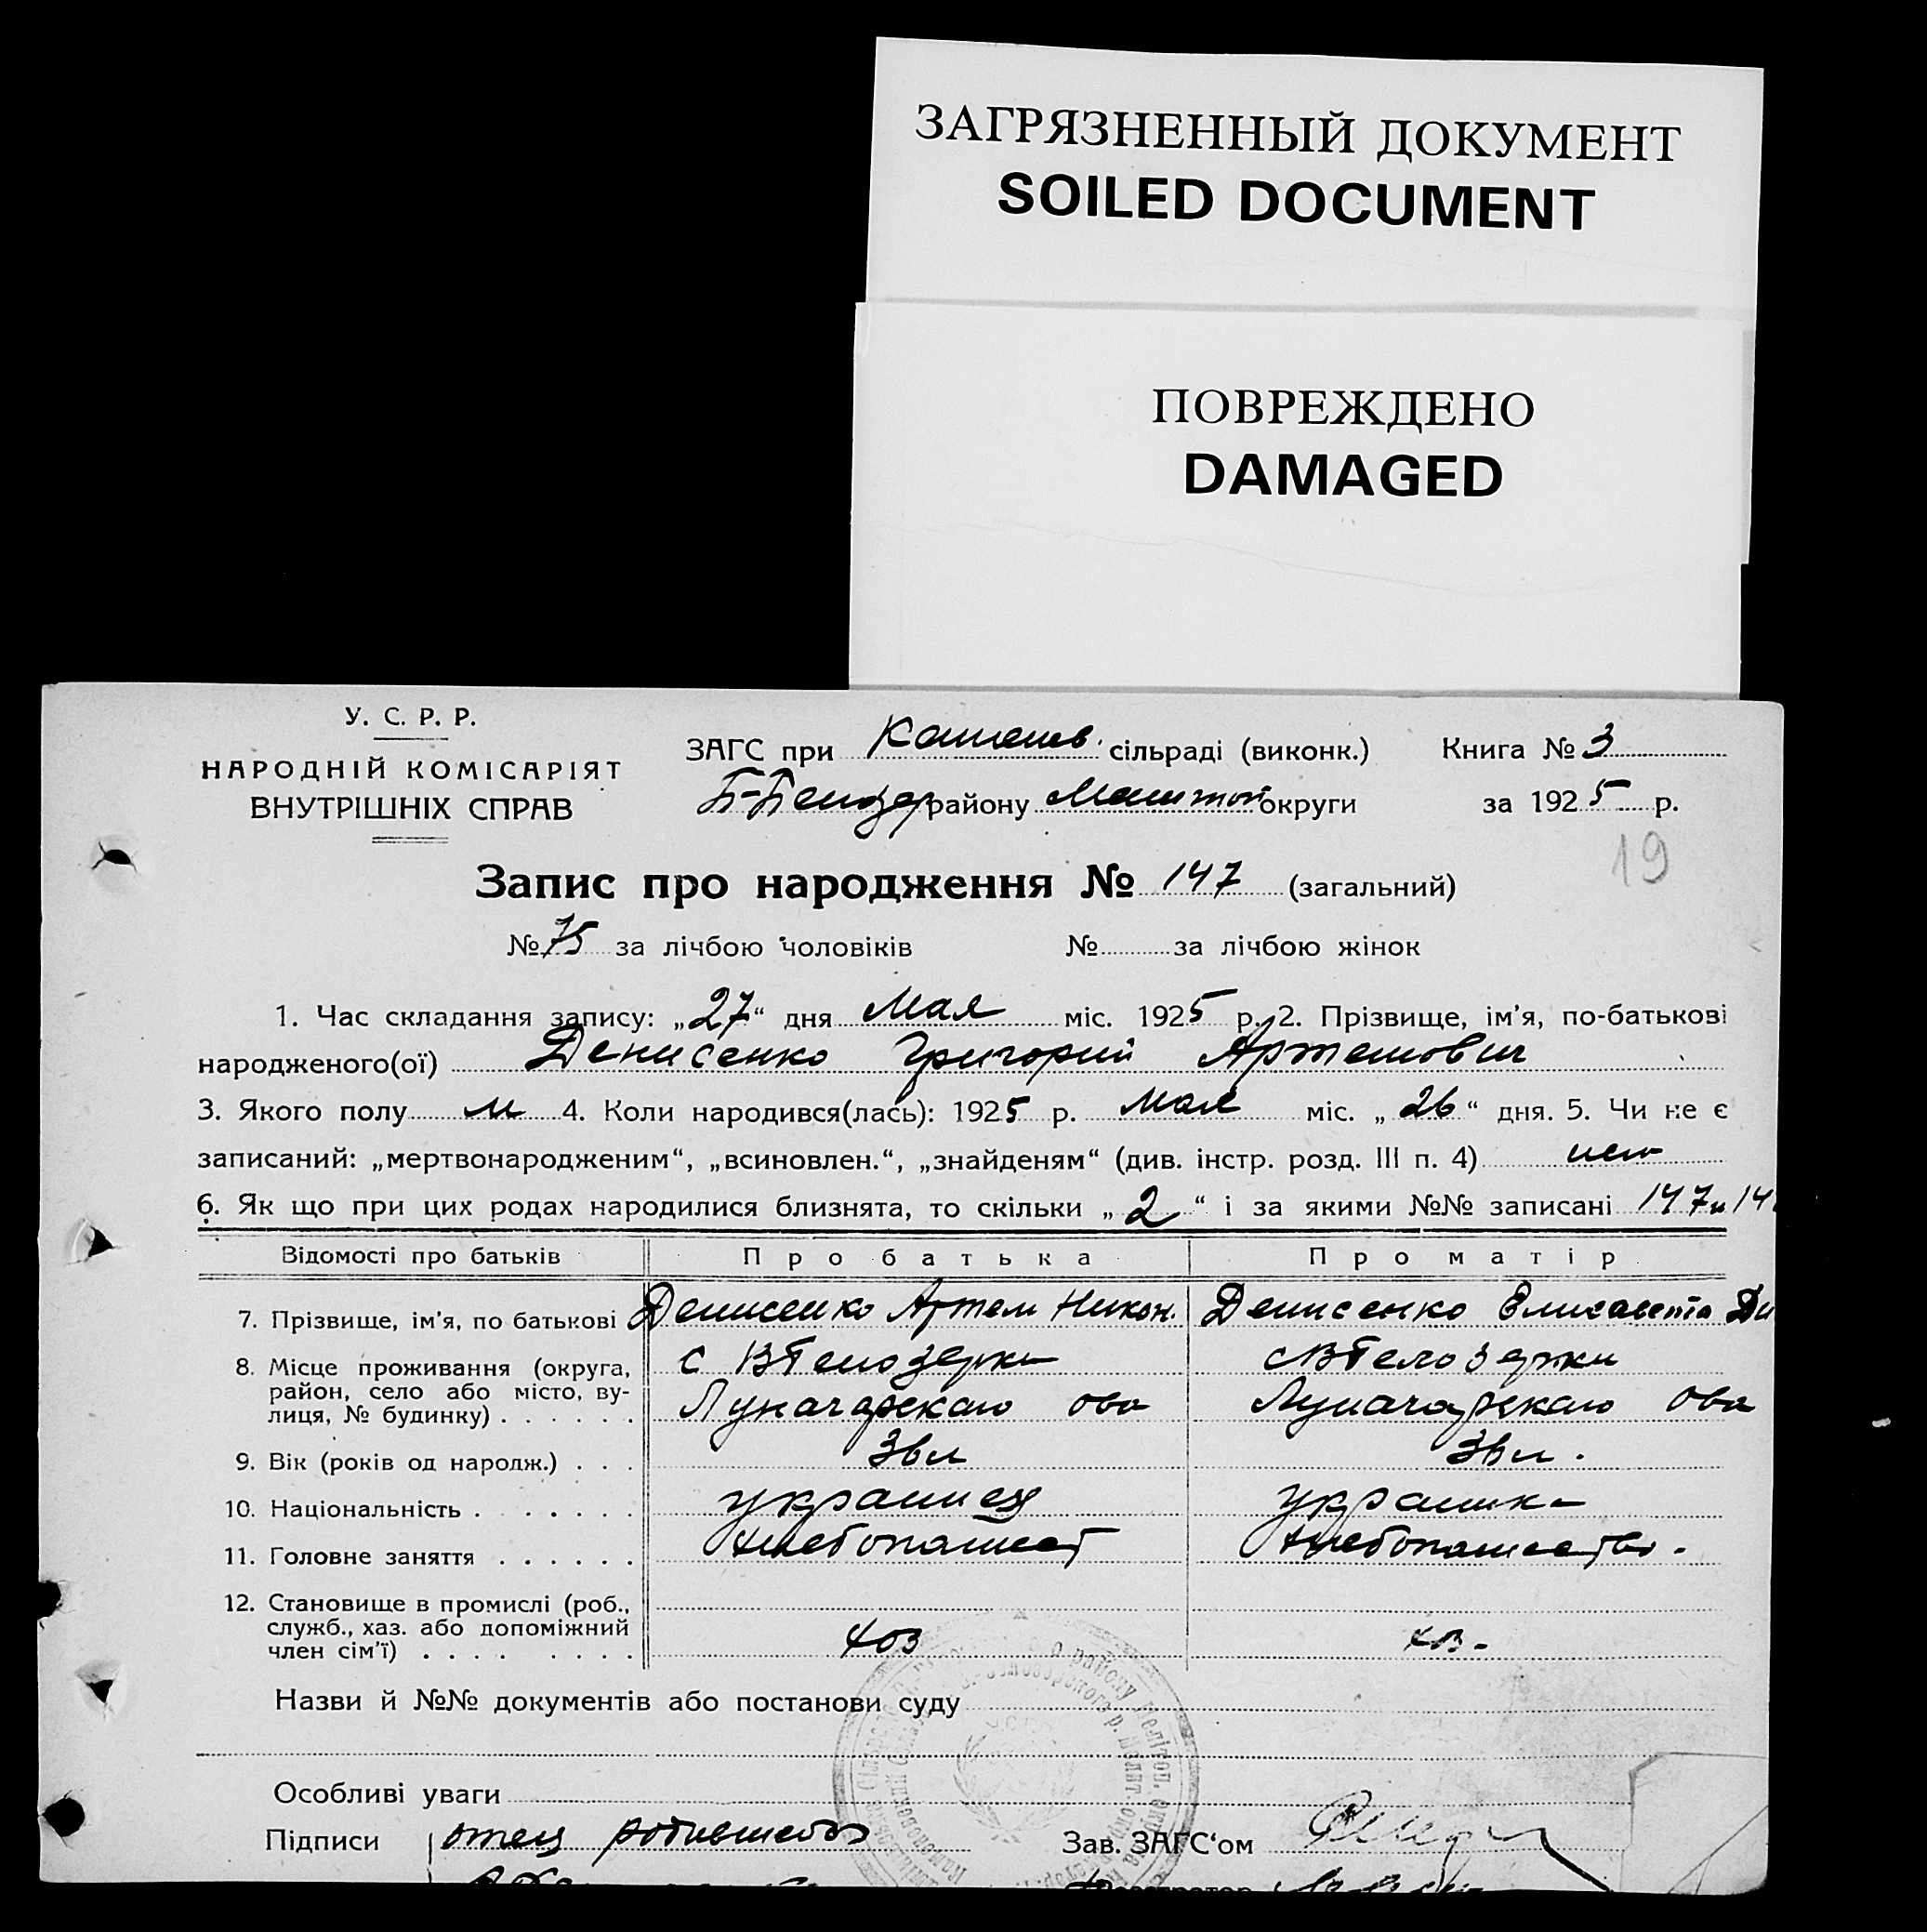 ЗАГРЯЗНЕННЫЙ ДОКУМЕНТ
SOILED DOCUMENT
ПОВРЕЖДЕНО
DAMAGED
У. С. Р. Р.
НАРОДНІЙ КОМІСАРІЯТ
ВНУТРІШНІХ СПРАВ
ЗАГС при сільраді (виконк.) Книга № 3
району округи за 1925 р.
19
Запис про народження № 147 (загальний)
№ 75 за лічбою чоловіків № за лічбою жінок
1. Час складання запису: „27“ дня Мая міс. 1925 р. 2. Прізвище, ім'я, по-батькові
народженого(ої) Денисенко Григорий Артемович
3. Якого полу м 4. Коли народився(лась): 1925 р. Мая міс. „26“ дня. 5. Чи не є
записаний: „мертвонародженим“, „всиновлен.“, „знайденям“ (див. інстр. розд. III п. 4) нет
6. Як що при цих родах народилися близнята, то скільки „2“ і за якими №№ записані 147 и 14
Відомості про батьків Про батька Про матір
7. Прізвище, ім'я, по батькові Денисенко Артем Никон. Денисенко Елисавета
8. Місце проживання (округа, район, село або місто, вулиця, № будинку) с Белозерки с Белозерки
Луначарскаго Луначарскаго
9. Вік (років од народж.)
10. Національність украинец украинка
11. Головне заняття хлебопашест хлебопашество.
12. Становище в промислі (роб., служб., хаз. або допоміжний член сім'ї) хоз
Назви й №№ документів або постанови суду
Особливі уваги
Підписи отец родившегося Зав. ЗАГС'ом